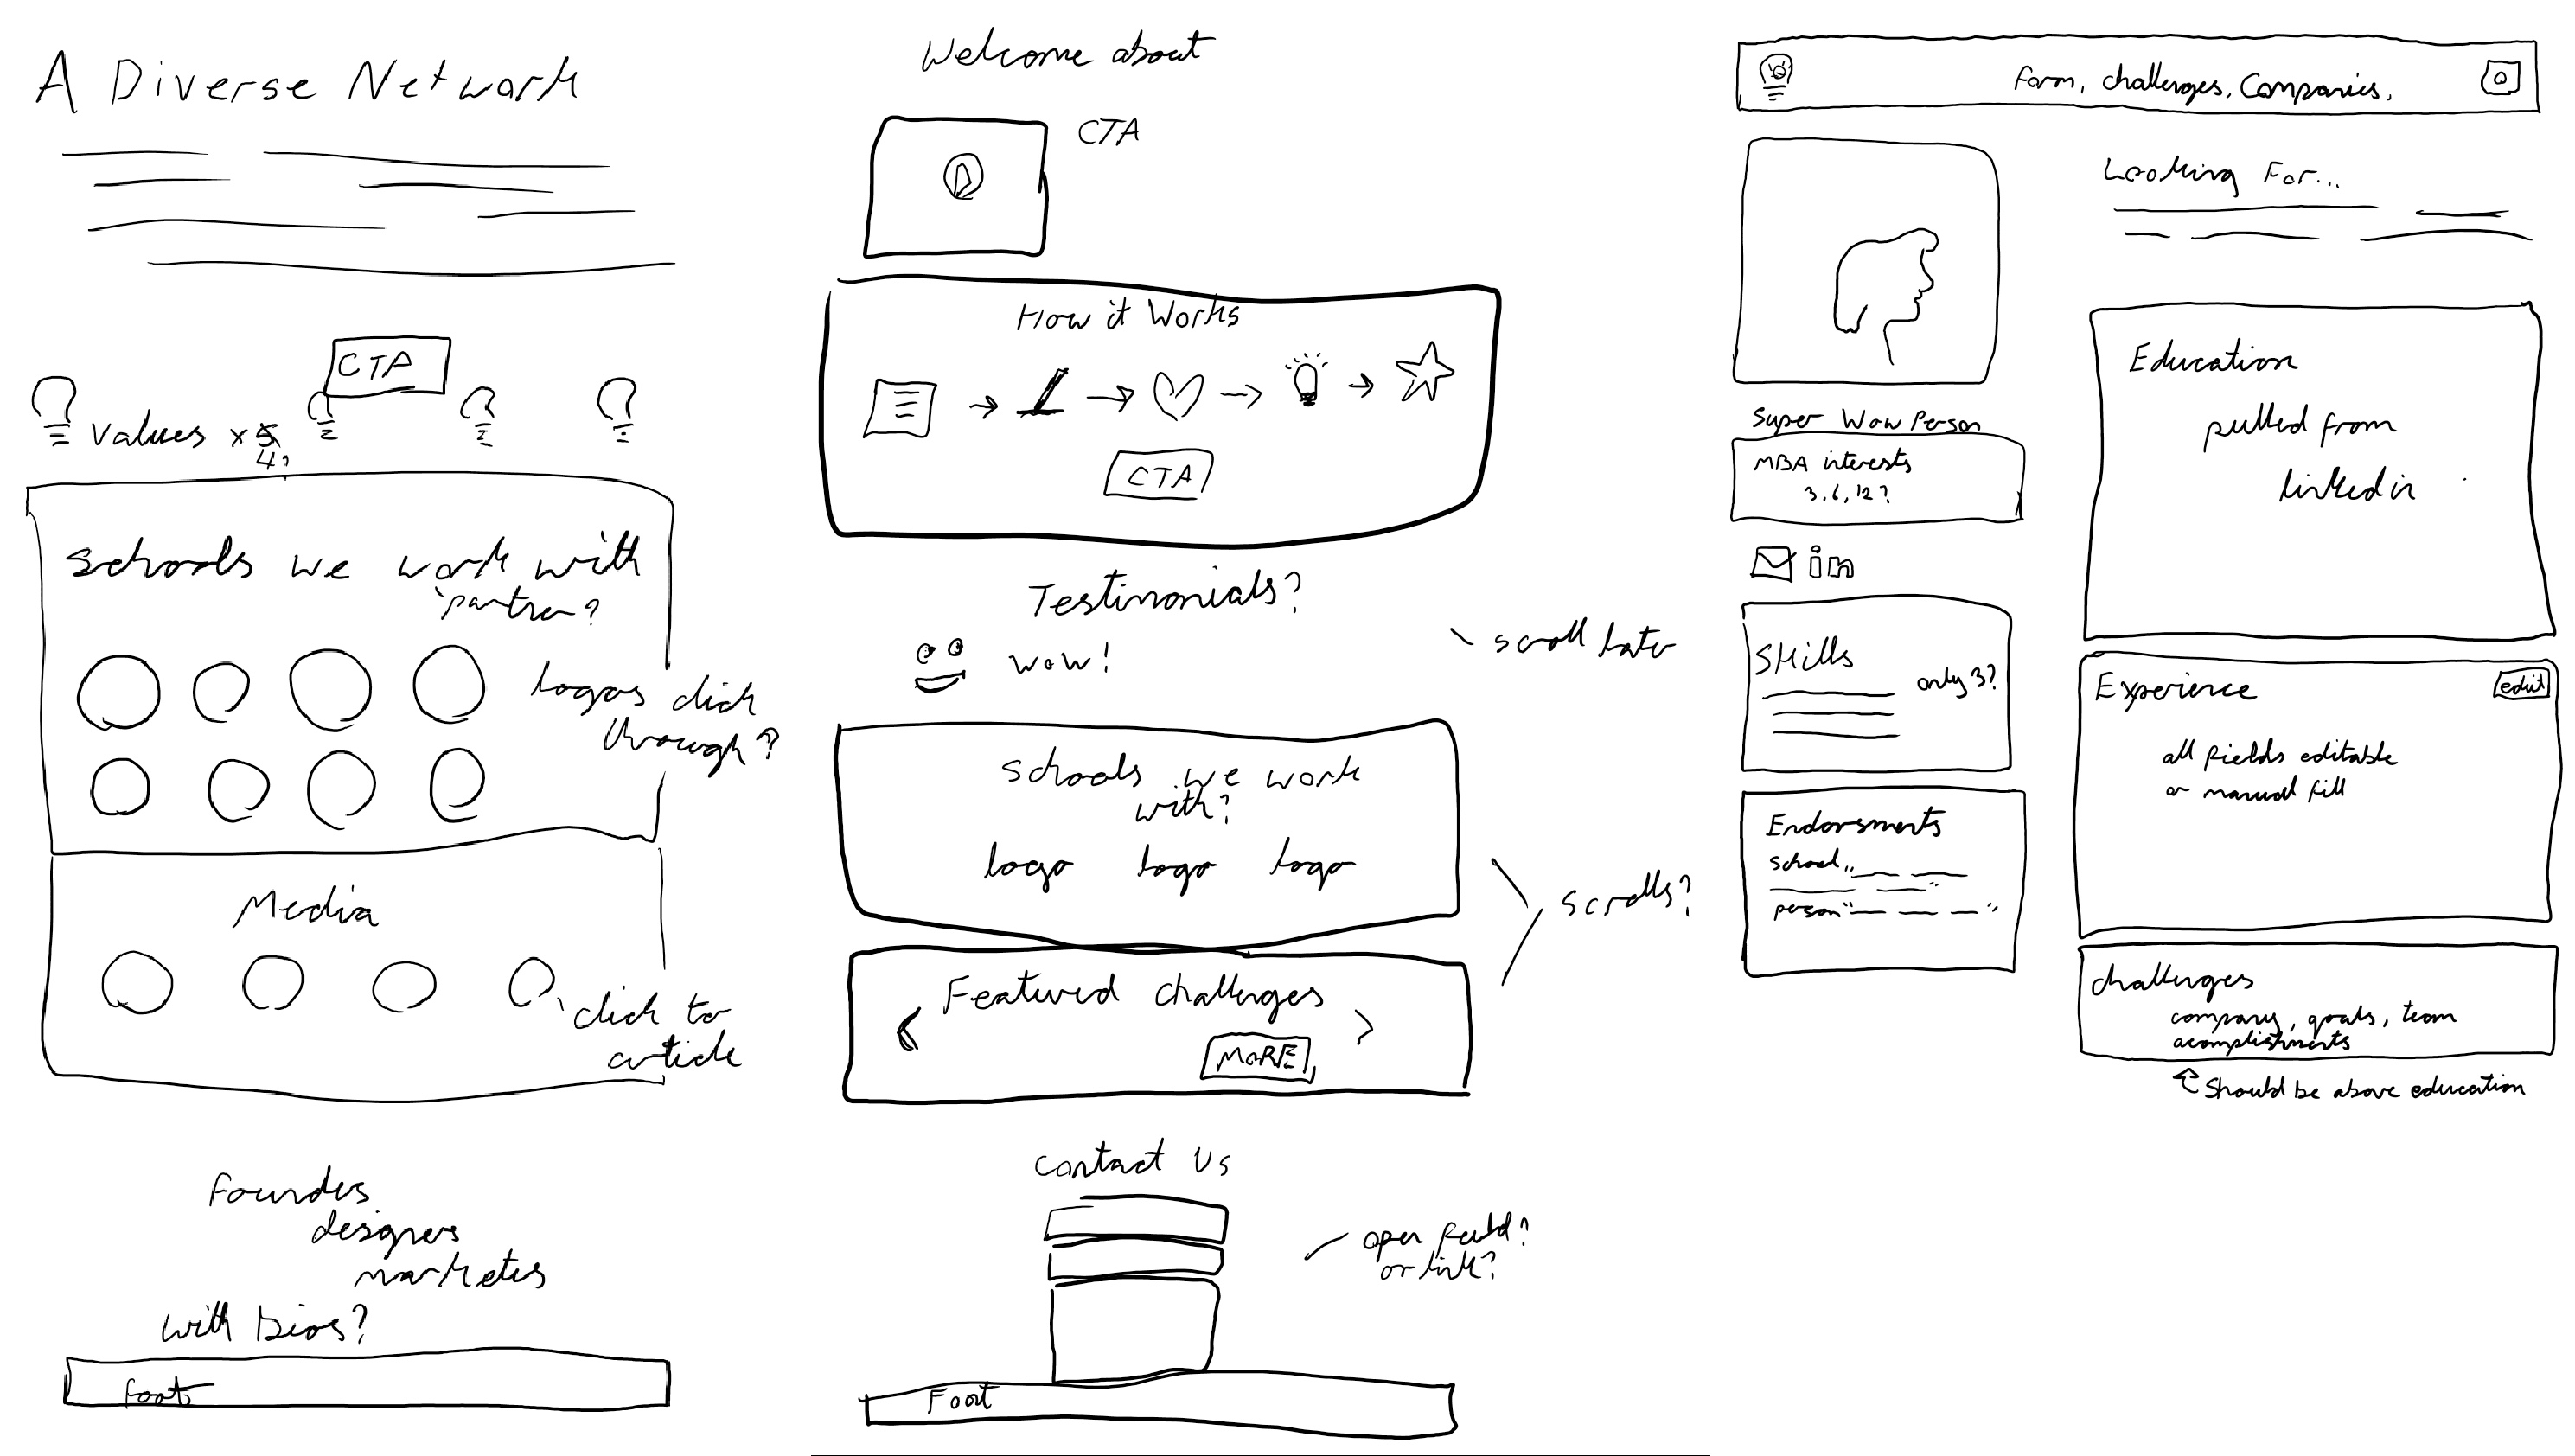 A Diverse Network
CTA
values x 5
4?
schools we work with
partner?
logos click
through?
Media
click to
article
Founders
designers
marketers
with bios?
Foot
Welcome about
CTA
How it Works
CTA
Testimonials?
wow!
scroll later
schools we work
with?
logo logo logo
scrolls?
Featured challenges
MORE
contact Us
open field?
or link?
Foot
Form, challenges, Companies,
Looking For...
Super Wow Person
MBA interests
3, 6, 12?
in
Skills
only 3?
Endorsments
school
person
Education
pulled from
linkedin
Experience
edit
all fields editable
or manual fill
challenges
company, goals, team
acomplishments
should be above education